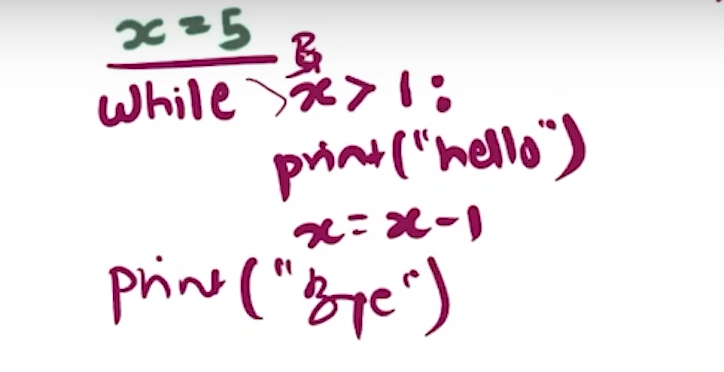 x = 5
while x > 1 :
print("hello")
x = x - 1
print("Bye")